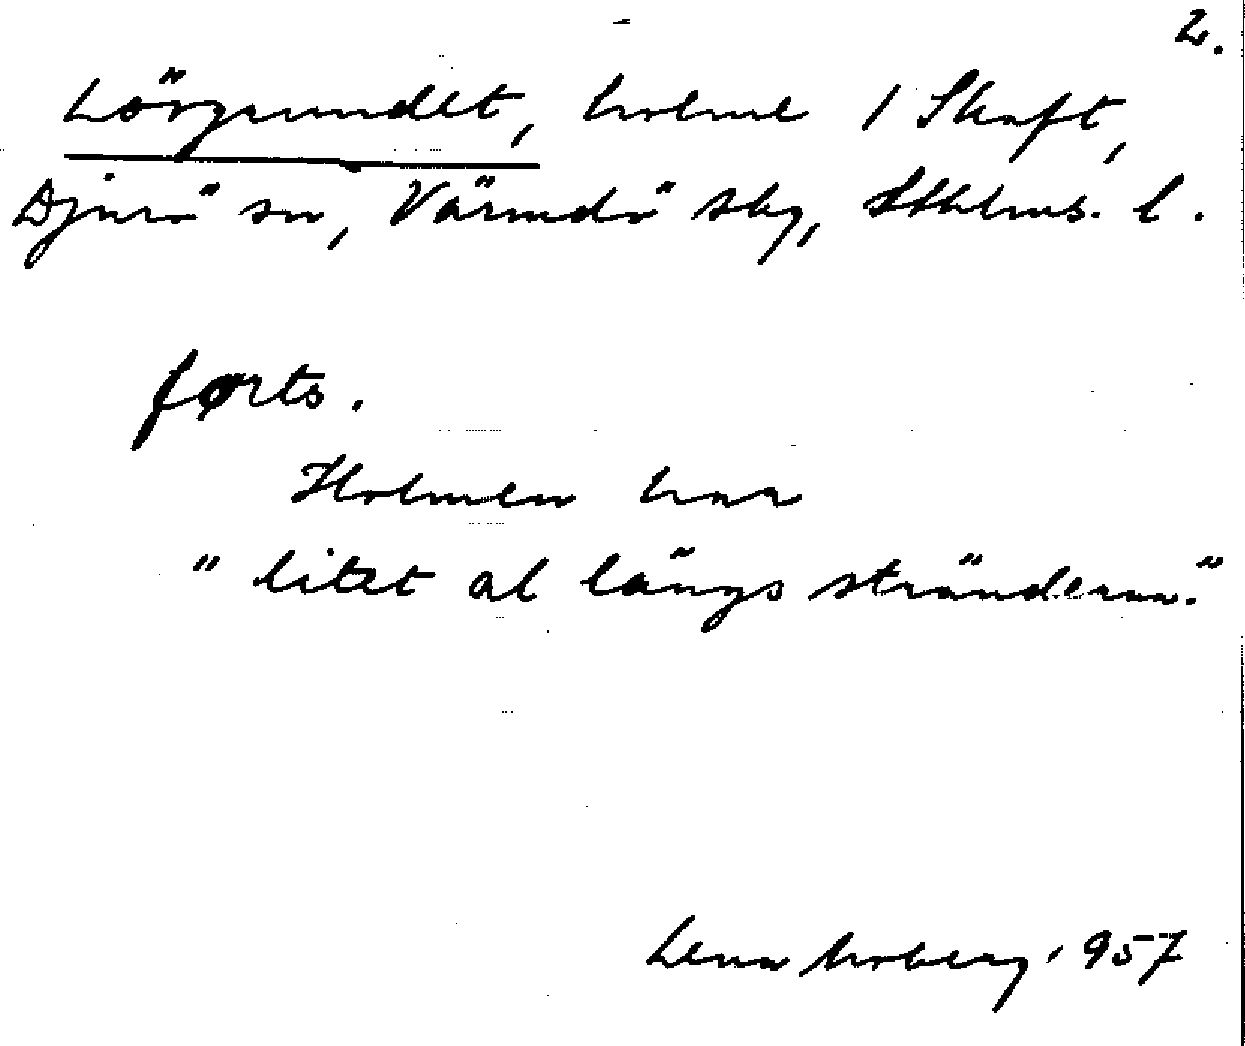 2.
Lövgrundet, holme 1 Skaft,
Djurö sn, Värmdö skg, Sthlms. l.
forts.
Holmen har
"litet al längs stränderna."
Lena Moberg 1957